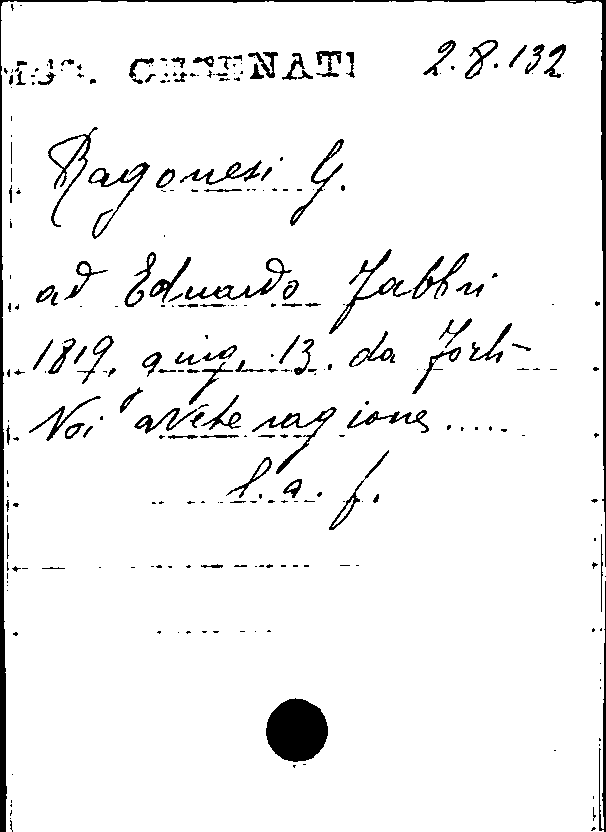 MSS. CESENATI 2.8.132
Ragonesi G.
ad Eduardo Fabbri
1819, giug. 13. da Forlì
Voi avete ragione.....
l. a. f.